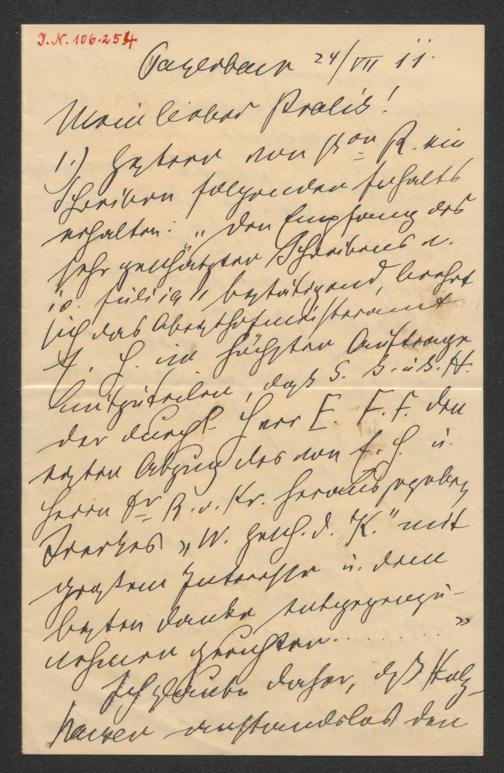 J.N. 106.254
Payerbach 24/VII 11.
Mein lieber Kralik!
1.) Gestern von Bon R. ein
Schreiben folgenden Inhalts
erhalten: „Den Empfang des
sehr geschätzten Schreibens v.
10. Juli ig" bestätigend, beehrt
sich das Obersthofmeisteramt
E. H. im höchsten Auftrage
mitzuteilen, daß S. k. u. k. H.
der durchl. Herr E. F. F. den
ersten Abzug des von E. H. u.
Herrn Dr R. v. Kr. herausgegeben
Werkes „W. Gesch. d. K." mit
größtem Interesse u. dem
besten Danke entgegenzu-
nehmen geruhten ........"
Ich glaube daher, daß Holz-
hausen anstandslos den